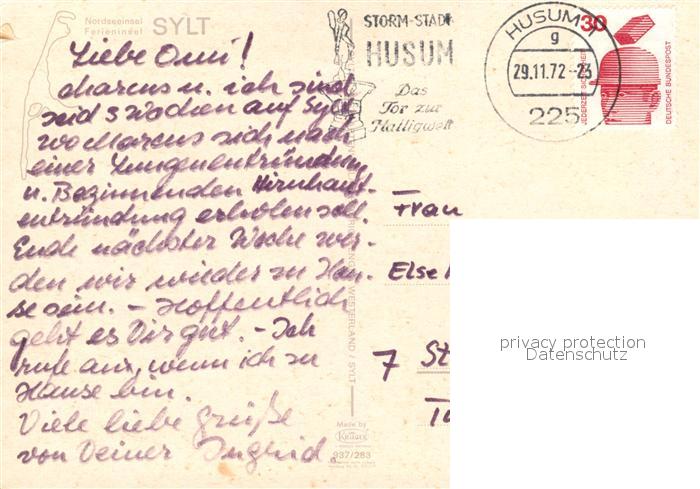 Nordseeinsel
Ferieninsel SYLT
Liebe Omi!
Marcus u. ich sind
seid 3 Wochen auf Sylt
wo Marcus sich nach
einer Lungenentzündung
u. Beginnenden Hirnhaut-
entzündung erholen soll.
Ende nächster Woche wer-
den wir wieder zu Hau-
se sein. – Hoffentlich
geht es Dir gut. – Ich
rufe an, wenn ich zu
Hause bin.
Viele liebe Grüße
von Deiner Ingrid.
STORM-STADT
HUSUM
Das
Tor zur
Halligwelt
HUSUM
g
29.11.72-23
225
30
JEDERZEIT SICHERHEIT
DEUTSCHE BUNDESPOST
Frau
Else
7 St
WESTERLAND / SYLT
Made by
Krüger
937/283
privacy protection
Datenschutz